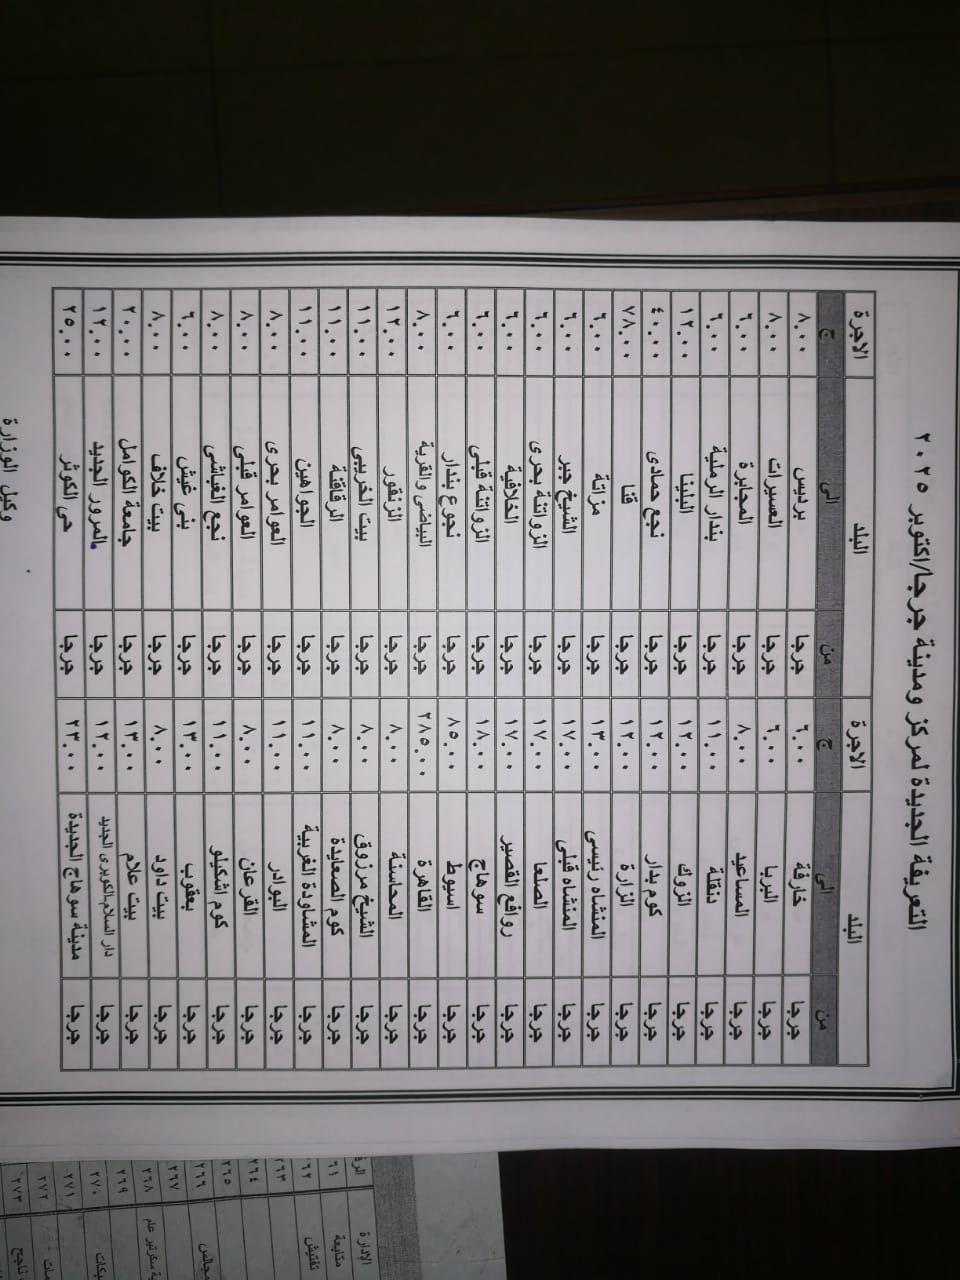 التعريفة الجديدة لمركز ومدينة جرجا/اكتوبر ٢٠٢٥
البلد الاجرة البلد الاجرة
من الى ج من الى ج
جرجا خارفة ٦.٠٠ جرجا برديس ٨.٠٠
جرجا البربا ٦.٠٠ جرجا العسيرات ٨.٠٠
جرجا المساعيد ٨.٠٠ جرجا المجابرة ٦.٠٠
جرجا دنقلة ١١.٠٠ جرجا بندار الرملية ٦.٠٠
جرجا الزوك ١٢.٠٠ جرجا البلينا ١٢.٠٠
جرجا كوم بدار ١٢.٠٠ جرجا نجع حمادى ٤٠.٠٠
جرجا الزارة ١٢.٠٠ جرجا قنا ٧٨.٠٠
جرجا المنشاه رئيسى ١٣.٠٠ جرجا مزاتة ٦.٠٠
جرجا المنشاه قبلى ١٧.٠٠ جرجا الشيخ جبر ٦.٠٠
جرجا الصلعا ١٧.٠٠ جرجا الزواتنة بحرى ٦.٠٠
جرجا روافع القصير ١٧.٠٠ جرجا الخلافية ٦.٠٠
جرجا سوهاج ١٨.٠٠ جرجا الزواتنة قبلى ٦.٠٠
جرجا اسيوط ٨٥.٠٠ جرجا نجوع بندار ٦.٠٠
جرجا القاهرة ٢٨٥.٠٠ جرجا البياضى والقرية ٨.٠٠
جرجا المحاسنة ٨.٠٠ جرجا الزنقور ١٢.٠٠
جرجا الشيخ مرزوق ٨.٠٠ جرجا بيت الخريبى ١١.٠٠
جرجا كوم الصعايدة ٨.٠٠ جرجا الرقاقنة ١١.٠٠
جرجا المشاودة الغربية ١١.٠٠ جرجا الجواهين ١١.٠٠
جرجا البوادر ١١.٠٠ جرجا العوامر بحرى ٨.٠٠
جرجا القرعان ٨.٠٠ جرجا العوامر قبلى ٨.٠٠
جرجا كوم اشكيلو ١١.٠٠ جرجا نجع الغباشى ٨.٠٠
جرجا يعقوب ١٣.٠٠ جرجا بنى عيش ٦.٠٠
جرجا بيت داود ٨.٠٠ جرجا بيت خلاف ٨.٠٠
جرجا بيت علام ١٣.٠٠ جرجا جامعة الكوامل ٢٠.٠٠
جرجا دار السلام.الكوبرى الجديد ١٢.٠٠ جرجا المرور الجديد ١٢.٠٠
جرجا مدينة سوهاج الجديدة ٢٣.٠٠ جرجا حى الكوثر ٢٥.٠٠
وكيل الوزارة
الإدارة
متابعة
تفتيش
٢٦٤
٢٦٥
٢٦٦ مجالس
٢٦٧
٢٦٨
٢٦٩
٢٧٠
٢٧١
٢٧٢
٢٧٣